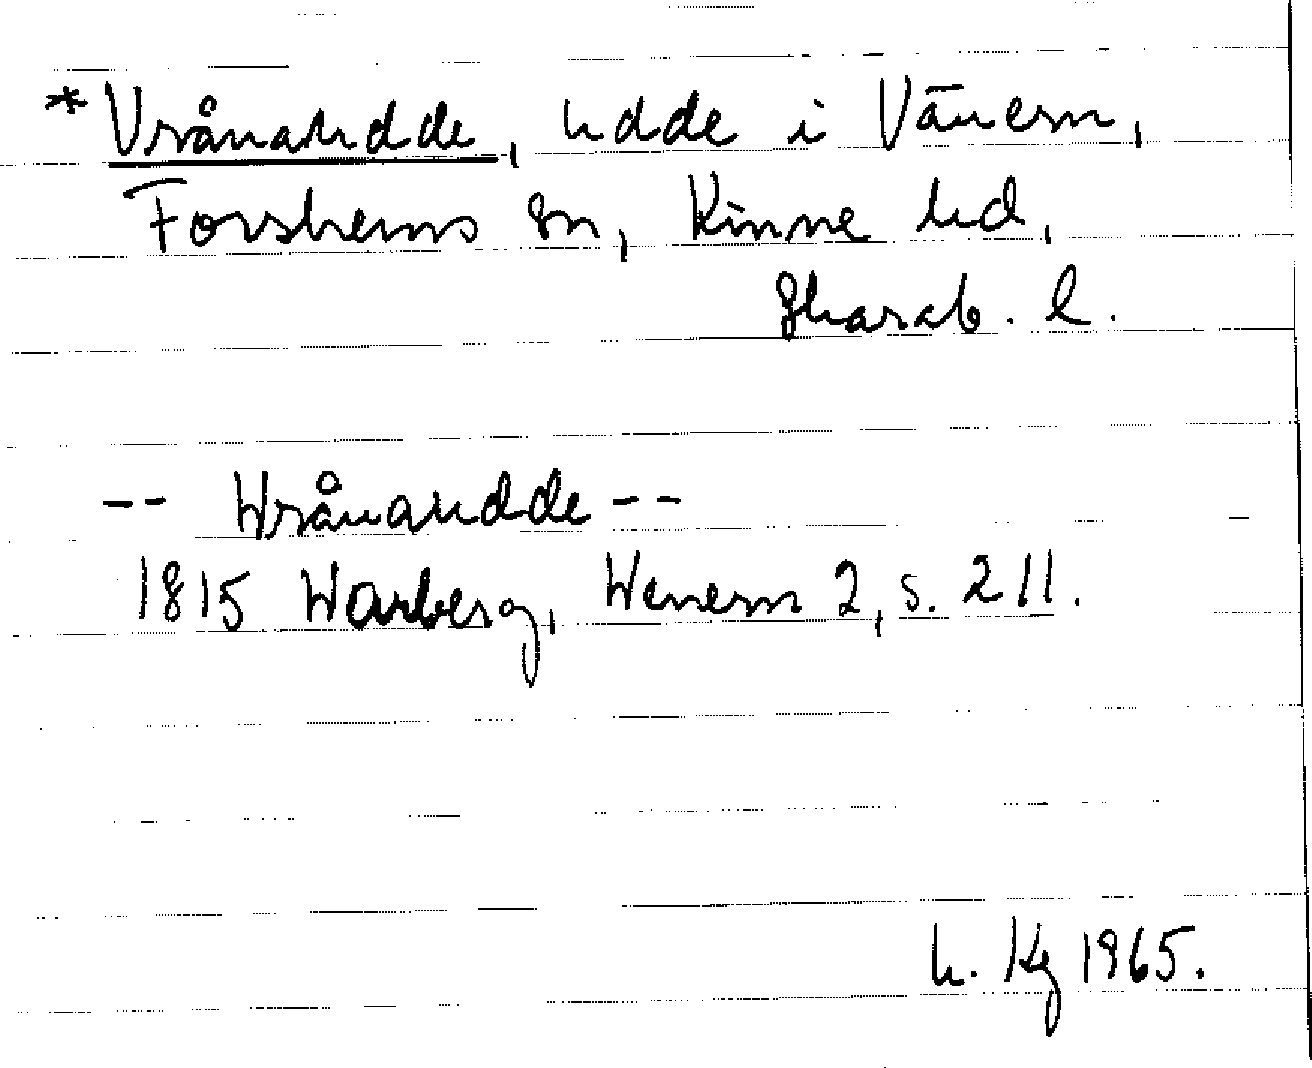 *Vrånaudde, udde i Vänern,
Forshems sn, Kinne hd,
Skarab. l.
-- Wrånaudde --
1815 Warberg, Wenern 2, s. 211.
h. Kg 1965.